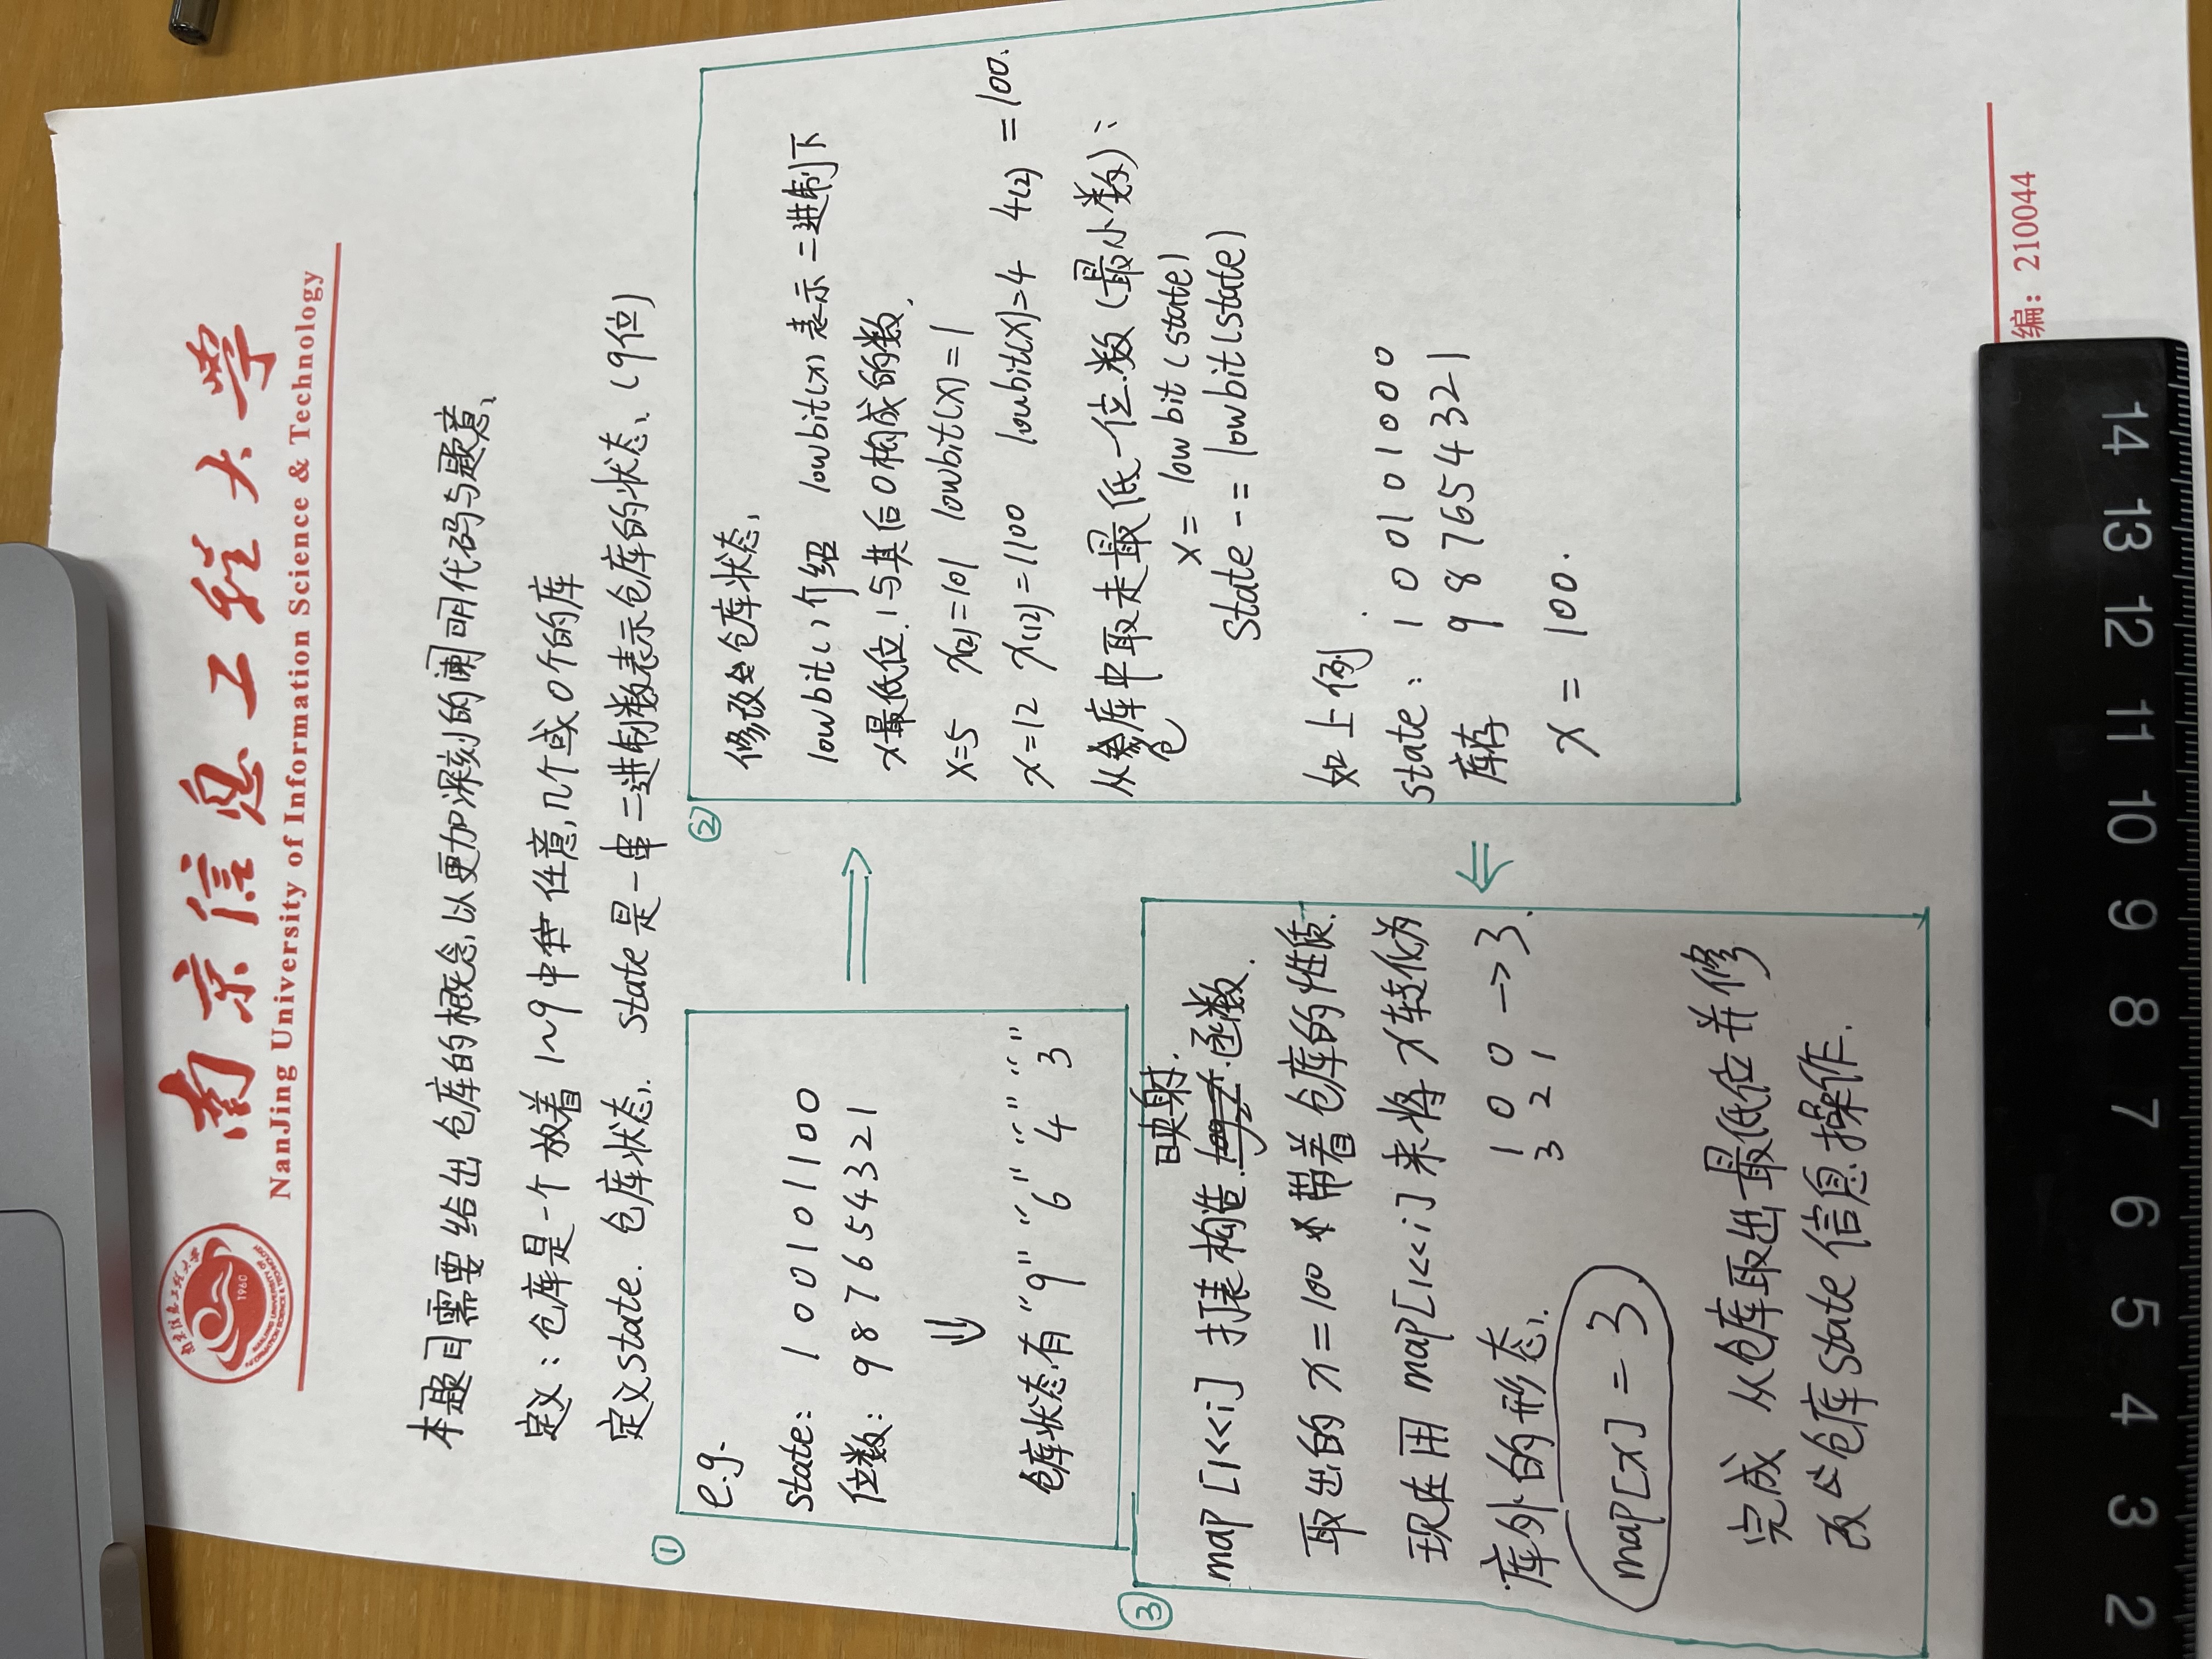 南京信息工程大学
1960
NANJING UNIVERSITY OF INFORMATION SCIENCE & TECHNOLOGY
南京信息工程大学
NanJing University of Information Science & Technology
本题目需要给出仓库的概念,以更加深刻的阐明代码与题意、
定义:仓库是一个放着 1~9中 任意,几个或0个的库
定义state. 仓库状态. state是一串二进制数表示仓库的状态、(9位)
①
e.g.
state: 1 0 0 1 0 1 1 0 0
位数: 9 8 7 6 5 4 3 2 1
⇓
仓库状态,有 "9" "6" "4" "3"
②
修改 仓库状态,
lowbit()介绍 lowbit(x)表示二进制下
x最低位.1与其后0构成的数,
x=5 x(2)=101 lowbit(x)=1
x=12 x(12)=1100 lowbit(x)=4 4(2) =100.
从仓库中取走最低一位.数(最小数):
x= lowbit(state)
state -= lowbit(state)
如上例.
state: 1 0 0 1 0 1 0 0 0
库存 9 8 7 6 5 4 3 2 1
x = 100.
③
映射.
map[1<<i] 打表构造.函数.
取出的 x=100 带着仓库的性质.
现在用 map[1<<i]来将 x转化为
库外的形态. 1 0 0 → 3.
3 2 1
map[x] = 3
完成 从仓库取出最低位并修
改 仓库state信息操作.
编:210044
2 3 4 5 6 7 8 9 10 11 12 13 14